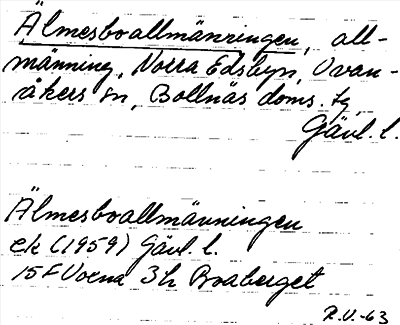 Älmesboallmänningen, all-
männing, Norra Edsbyn, Ovan-
åkers sn, Bollnäs doms. tg
Gävl. l.
Älmesboallmänningen
ek (1959) Gävl. l.
15F Voxna 3h Roaberget
R.V.-63